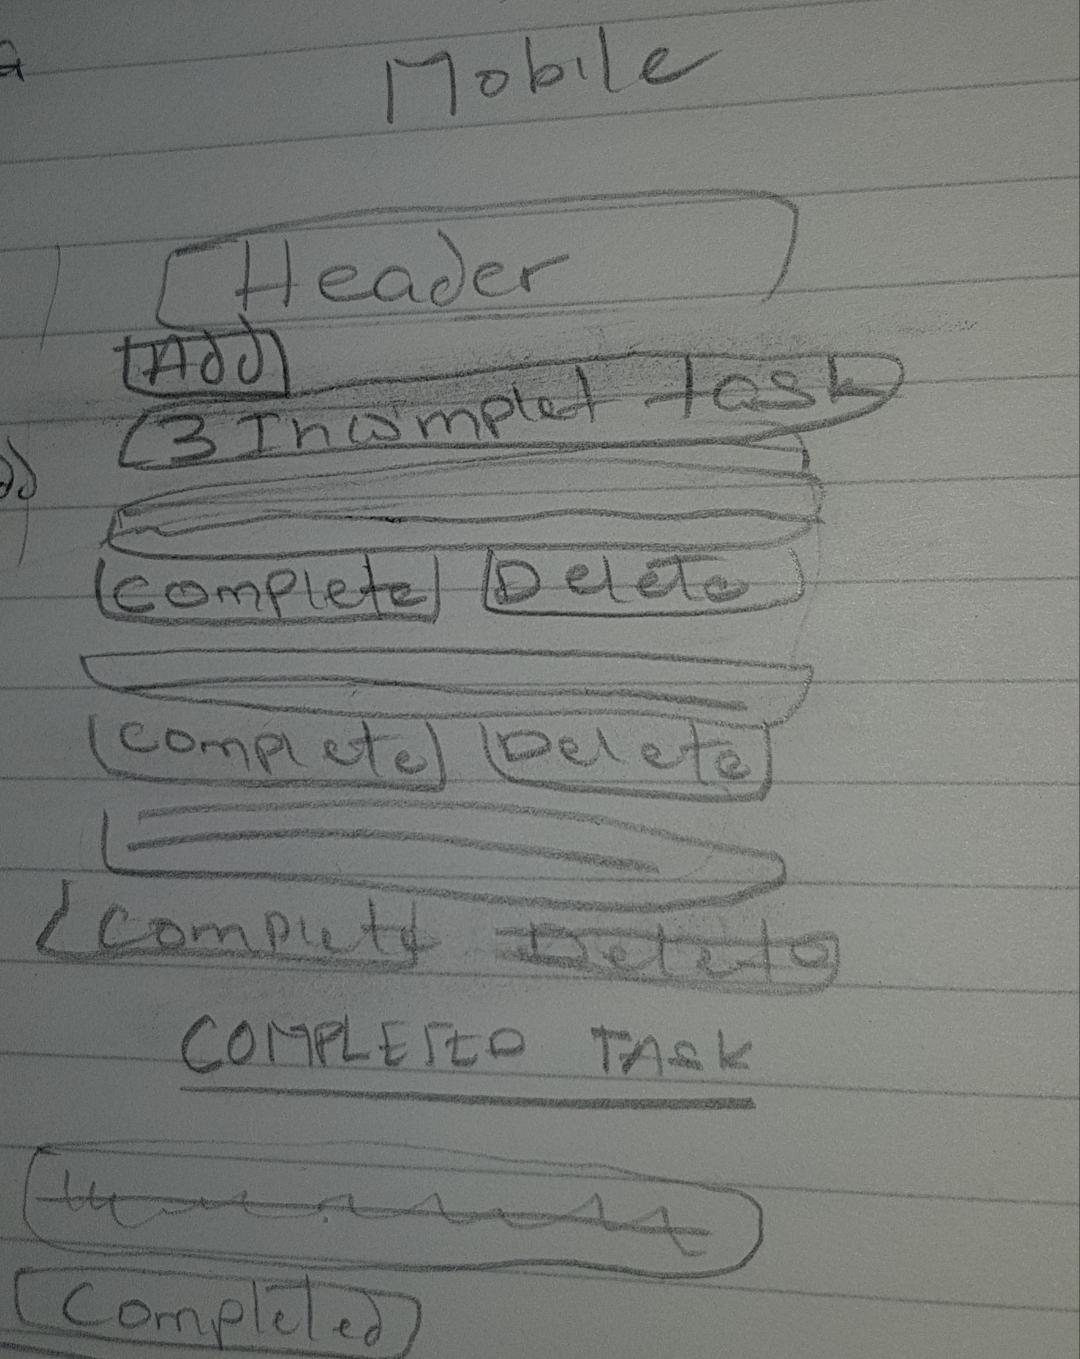 Mobile
Header
Add
3 Incomplet task
Complete Delete
Complete Delete
Complete Delete
COMPLETED TASK
Completed